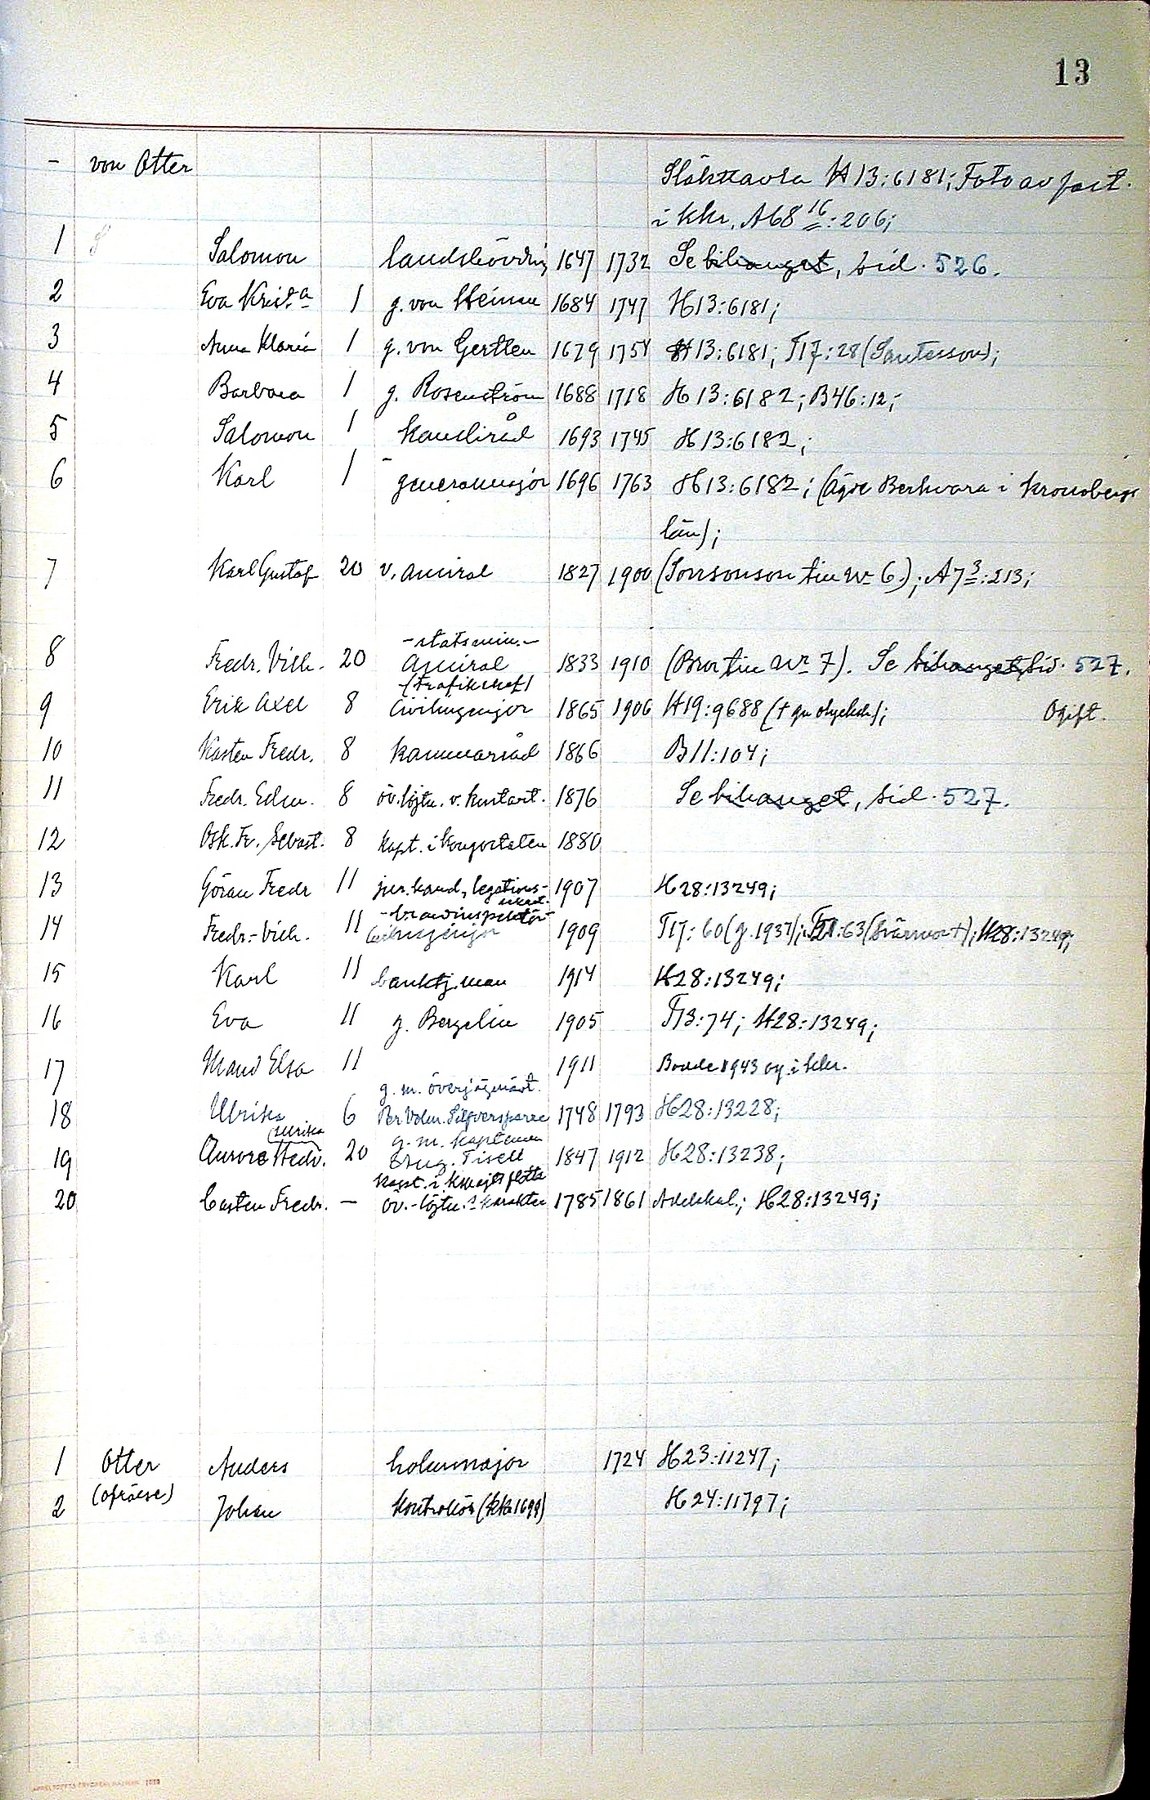 13
- von Otter Släkttavla H13:6181; Foto av port.
i kkr. A68 16:206;
1 Salomon landshövding 1647 1732 Se bihanget, sid. 526.
2 Eva Krist:a 1 g. von Heinne 1684 1747 H13:6181;
3 Anna Maria 1 g. von Gertten 1679 1754 H13:6181; T17:28 (Santesson);
4 Barbara 1 g. Rosenström 1688 1718 H13:6182; B46:12;
5 Salomon 1 kansliråd 1693 1745 H13:6182;
6 Karl 1 generalmajor 1696 1763 H13:6182; (Ägde Berkvara i Kronobergs
län);
7 Karl Gustaf 20 v. amiral 1827 1900 (Sonsonson till Nr 6.); A7 3:213;
-statsmin.-
8 Fredr. Vilh. 20 Amiral 1833 1910 (Bror till Nr 7). Se bihanget, sid. 527.
(trafikchef)
9 Erik Axel 8 Civilingenjör 1865 1906 H19:9688 († gm olycksh.); Ogift.
10 Kasten Fredr. 8 kammarråd 1866 B11:104;
11 Fredr. Edm. 8 öv.löjtn. v. kustart. 1876 Se bihanget, sid. 527.
12 Osk. Fr. Sebast. 8 kapt. i kongostaten 1880
13 Göran Fredr 11 jur. kand, legations- 1907 H28:13249;
sekret.
-brandinspektör-
14 Fredr.-Vilh. 11 Civilingenjör 1909 T17:60 (g. 1937); :63 (); H28:13249;
15 Karl 11 banktj.man 1914 H28:13249;
16 Eva 11 g. Bergelin 1905 T13:74; H28:13249;
17 Maud Elsa 11 1911 Bodde 1943 og. i hkr.
g. m. överjägmäst.
18 Ulrika 6 Per Volm. Silfversparre 1748 1793 H28:13228;
(Ulrika g. m. kaptenen
19 Aurora Hedv. 20 Aug. Tisell 1847 1912 H28:13238;
kapt. i K. Maj:ts flotta
20 Casten Fredr. - öv.-löjtn.:s karakter 1785 1861 Adelskal.; H28:13249;
1 Otter Anders holmmajor 1724 H23:11247;
(ofrälse)
2 Johan kontrollör (kkr 1699) H24:11797;